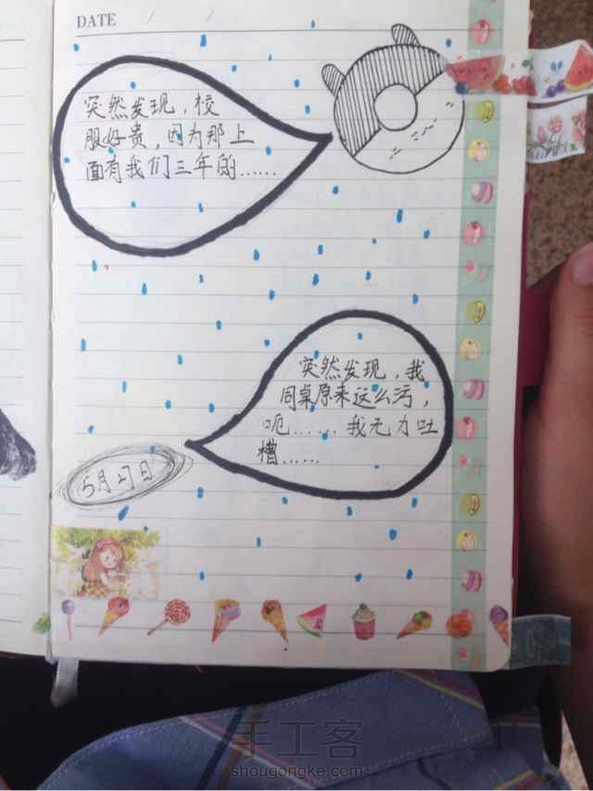 DATE / /
突然发现，校
服好贵，因为那上
面有我们三年的……
突然发现，我
同桌原来这么污，
呃……我无力吐
槽……
5月27日
手工客
shougongke.com